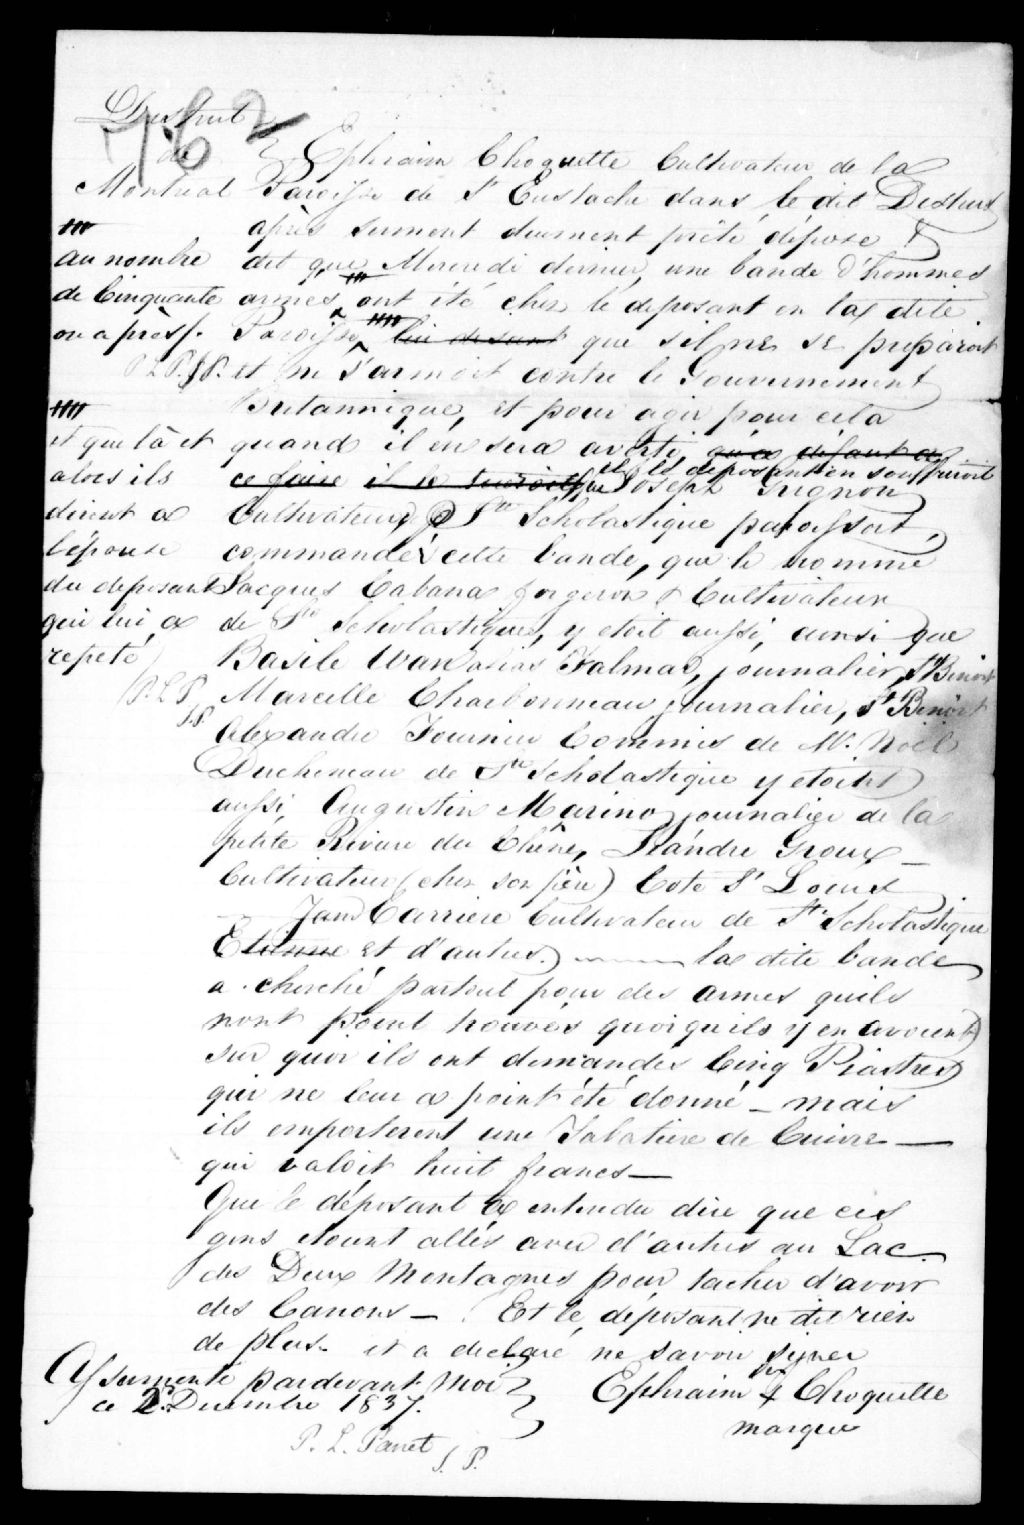 762
District
de
Montreal
Ephraim Choquette Cultivateur de la
Paroisse de St Eustache dans le dit District
après serment duement prêté dépose &
dit que Mercredi dernier, une bande d'hommes
armés, ont été chez le deposant en la dite
Paroisse, lui disant que s'il ne se préparoit
et ne s'armoit contre le Gouvernement
Britannique, et pour agir pour cela
quand il en sera averti, qu'a défaut de
ce faire il le que Joseph Grignon
et le deposant en souffriroit
Cultivateur, Ste Scholastique paroissoit,
commandé cette bande, que le nommé
Jacques Cabana forgeron & Cultivateur
de Ste Scholastique, y etoit aussi, ainsi que
Basile Wan alias Falmar, journalier, St Benoit
Marcelle Charbonneau journalier, St Benoit
Alexandre Fournier Commis de Mr. Noël
Ducheneau de Ste Scholastique y etoit
aussi, Augustin Marino journalier de la
petite Riviere du Chêne, Léandre Groux
Cultivateur (chez son père) Cote St Louis
Carriere Cultivateur de Ste Scholastique
Etienne et d'autres. la dite bande
a cherché partout pour des armes quils
nont point trouvés quoiquils y en avoient
sur quoi ils ont demandés Cinq Piastres
qui ne leur a point été donné - mais
ils emporterent une Tabatiere de Cuivre -
qui valoit huit francs -
Que le déposant a entendu dire que ces
gens etoient allés avec d'autres au Lac
des Deux Montagnes pour tacher d'avoir
des Canons - Et le déposant ne dit rien
de plus. et a declaré ne savoir signer
au nombre
de Cinquante
ou a près.
P.L.P. J.P.
et que là et
alors ils
dirent a
l'épouse
du deposant
qui lui a
repeté
P.L.P.
J.P.
Assermenté pardevant Moi
ce 2 Decembre 1837.
P. L. Panet
J. P.
sa
Ephraim + Choquette
marque